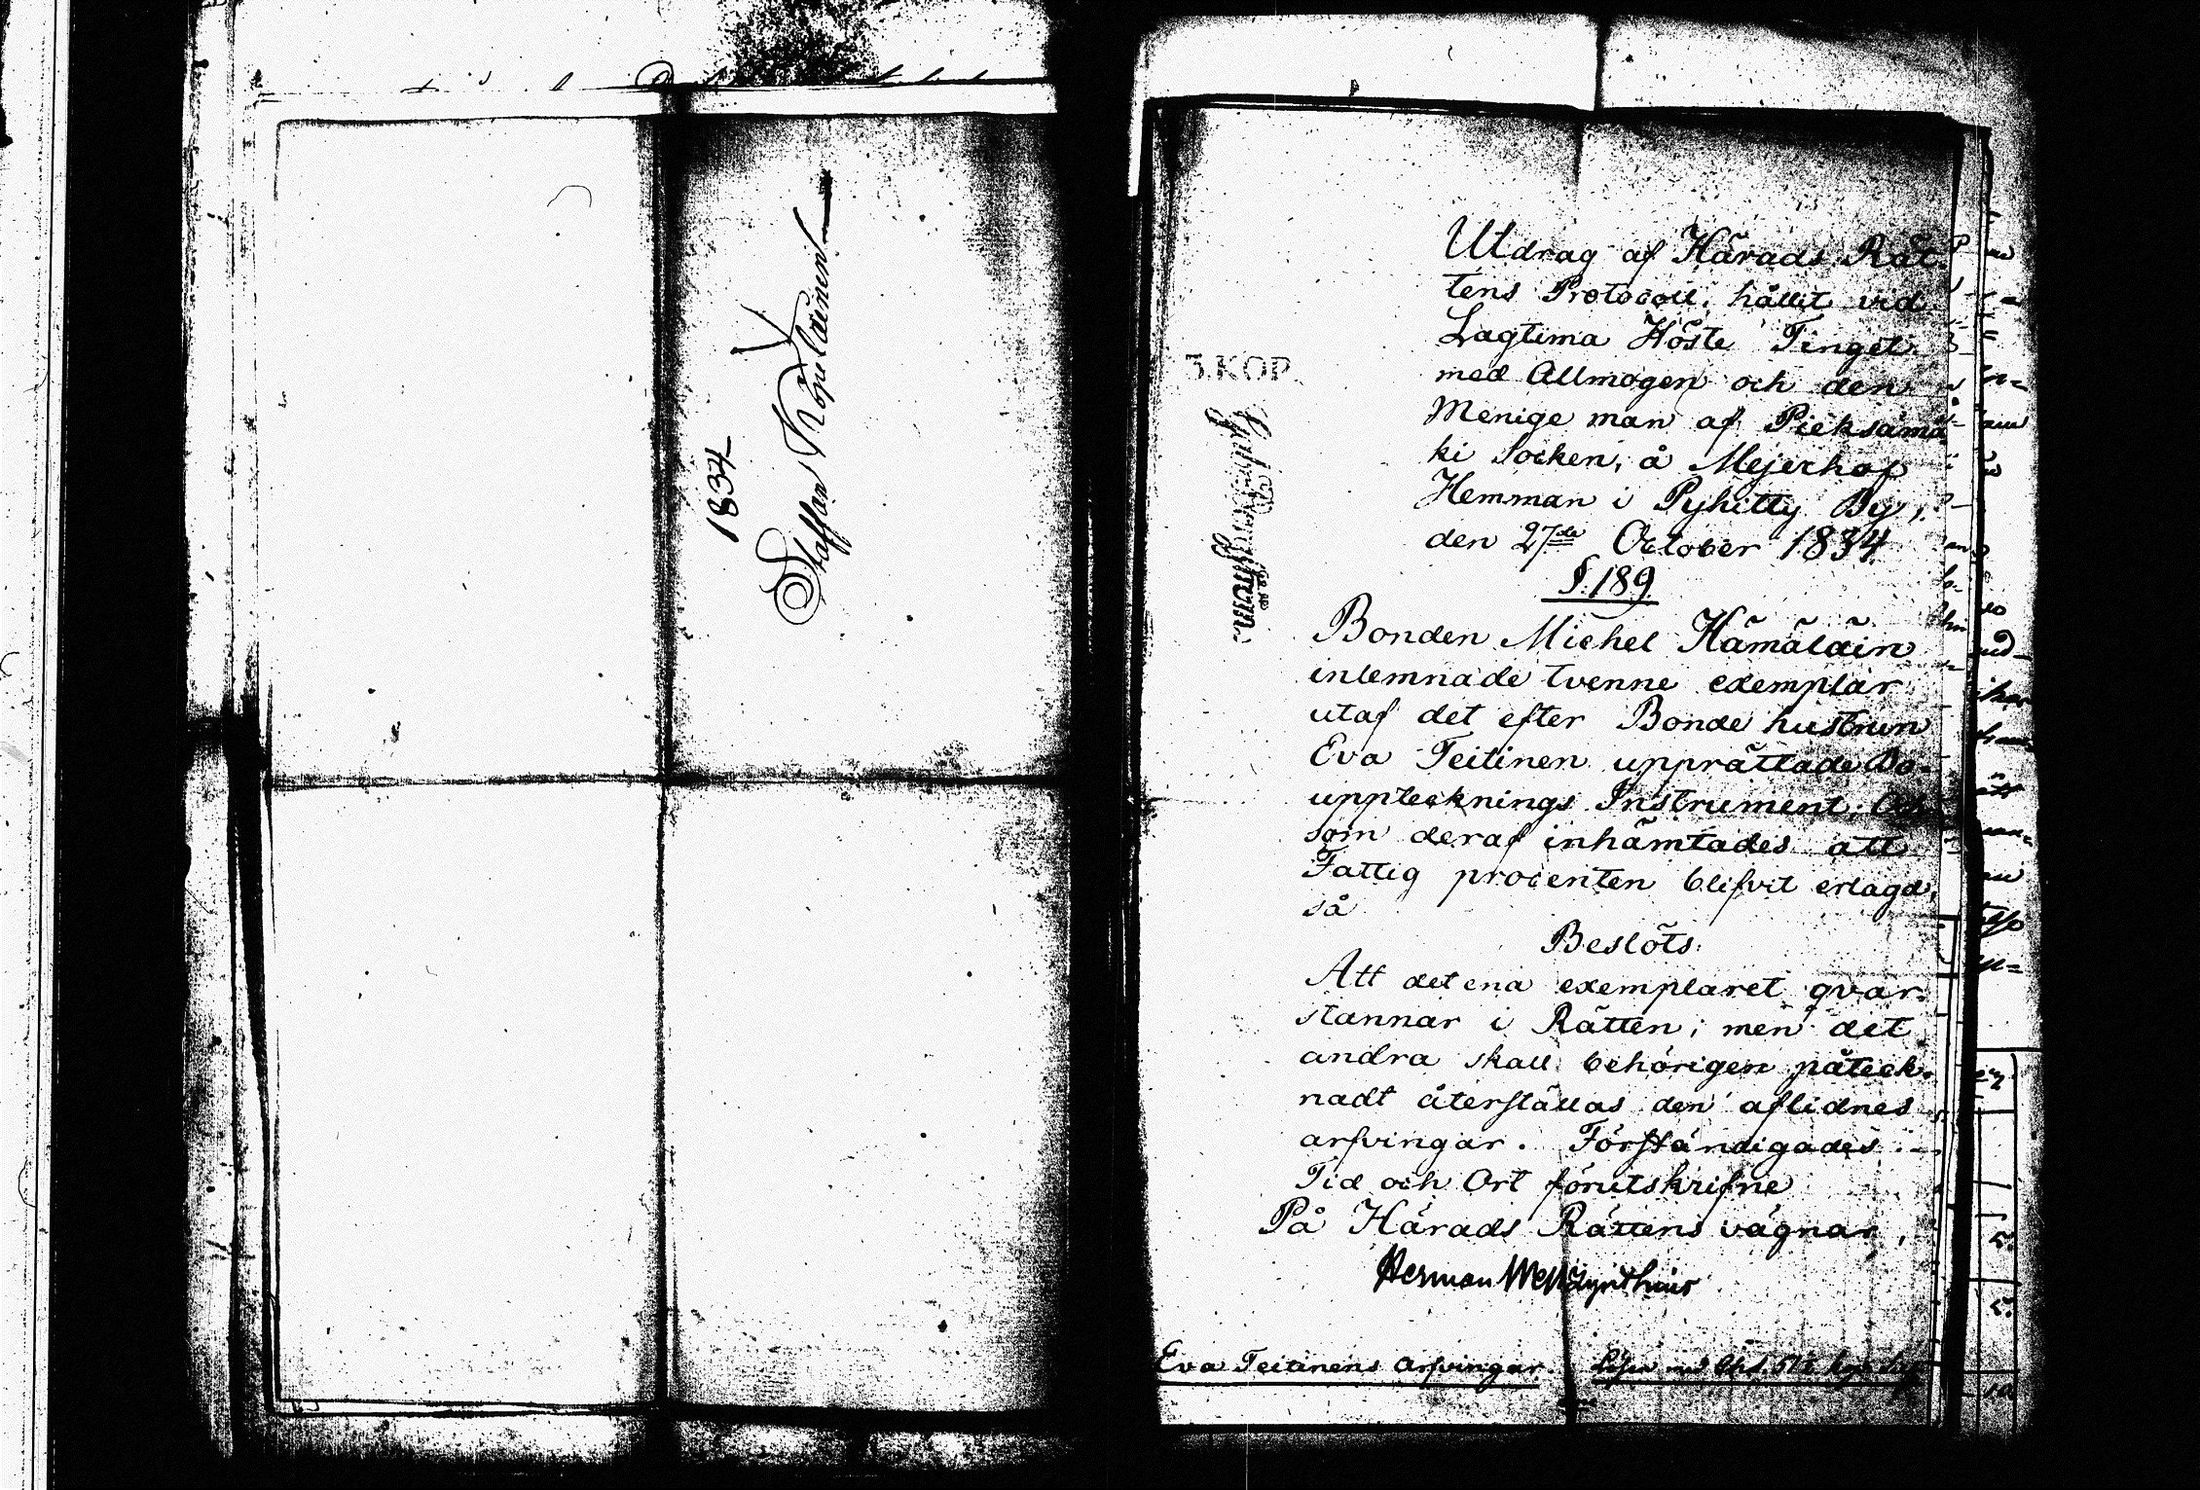 1834
Staffan Kopulainen
3.KOP.
Utdrag af Härads Rät-
tens Protocoll, hållit vid
Lagtima Höste Tinget
med Allmogen och den
Menige man af Pieksämä
ki Socken, å Mejerhof
Hemman i Pyhitty By,
den 27de October 1834
§. 189.
Bonden Michel Hämäläin
inlemnade tvenne exemplar
utaf det efter Bonde hustrun
Eva Teitinen upprättade Bo-
upptecknings Instrument; Och
som deraf inhämtades att
Fattig procenten blifvit erlagd,
så
Beslöts:
Att det ena exemplaret qvar-
stannar i Rätten; men det
andra skall behörigen påteck-
nadt återställas den aflidnes
arfvingar. Förständigades
Tid och Ort förutskrifne
På Härads Rättens vägnar,
Herman
Eva Teitinens Arfvingar. Lösen med